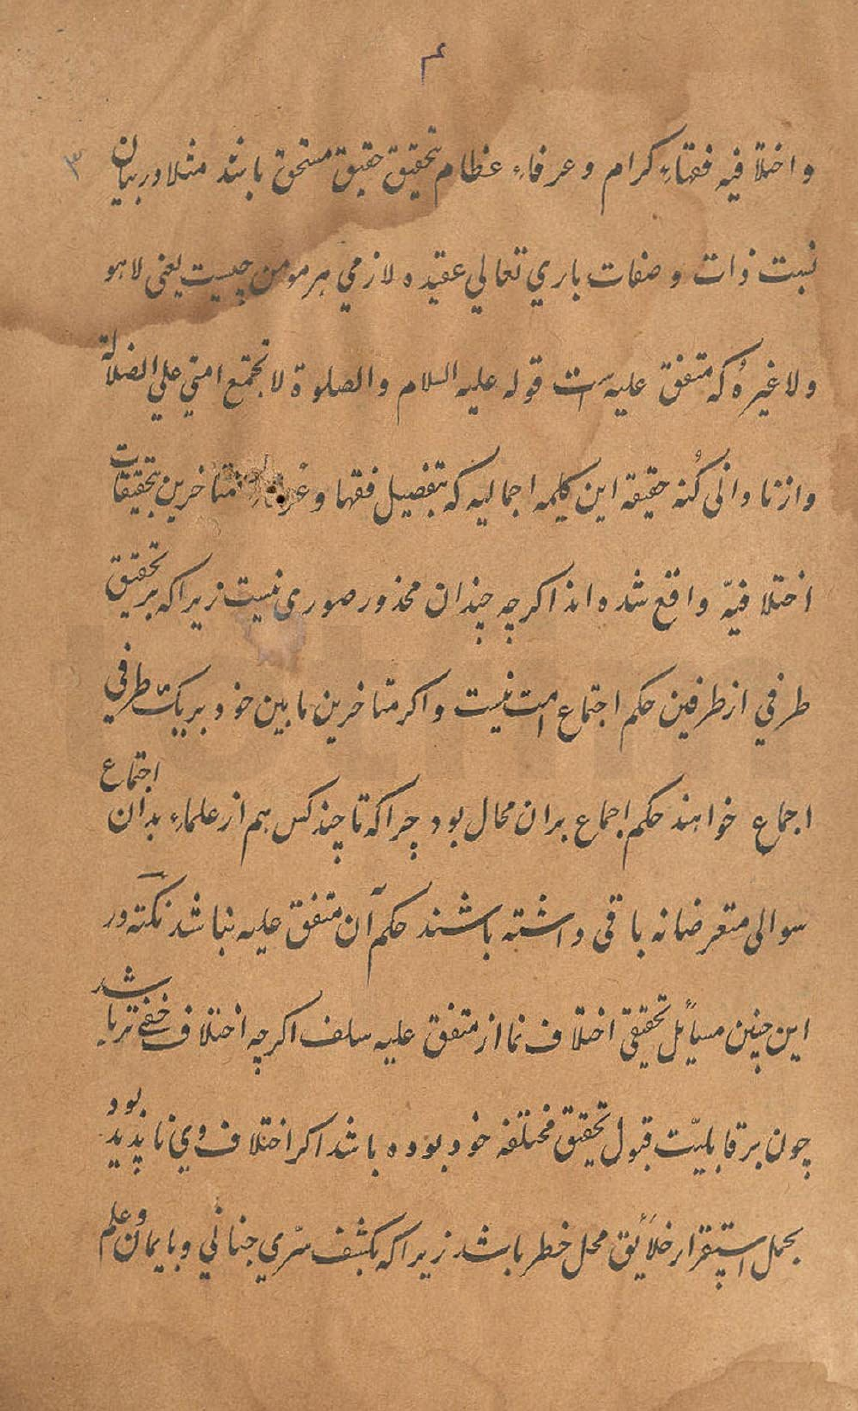 ۴
۳
واختلافیه فقهاءِ کرام و عرفاءِ عظام بتحقیق حقیق مستحق باشد مثلا در بیان
نسبت ذات و صفات باري تعالي عقیده لازمي هر مومن چیست یعنی لاهو
ولا غیرهُ که متفق علیه است قوله علیه السلام والصلوة لا تجتمع امتي علي الضلالة
واز نادانی کُنه حقیقه این کلیمه اجمالیه که بتفصیل فقها و متاخرین بتحقیقات
اختلافیّه واقع شده اند اکرچه چندان محذور صوری نیست زیراکه بر تحقیق
طرفي از طرفین حکم اجتماع امت نیست و اکر متاخرین مابین خود بر یک طرفي
اجماع خواهند حکم اجماع بران محال بود چراکه تا چند کس هم از علماءِ بدان اجتماع
سوالی متعرضانه باقی داشته باشند حکم آن متفق علیه نباشد نکته در
این چنین مسأیل تحقیقی اختلاف نما از متفق علیه سلف اکرچه اختلاف خفے تر باشد
چون بر قابلیّت قبول تحقیق مختلفه خود بوده باشد اکر اختلاف وي ناپدید بود
بحمل استقرار خلأیق محل خطر باشد زیراکه بکشف سرّي جناني و بایمان و علم